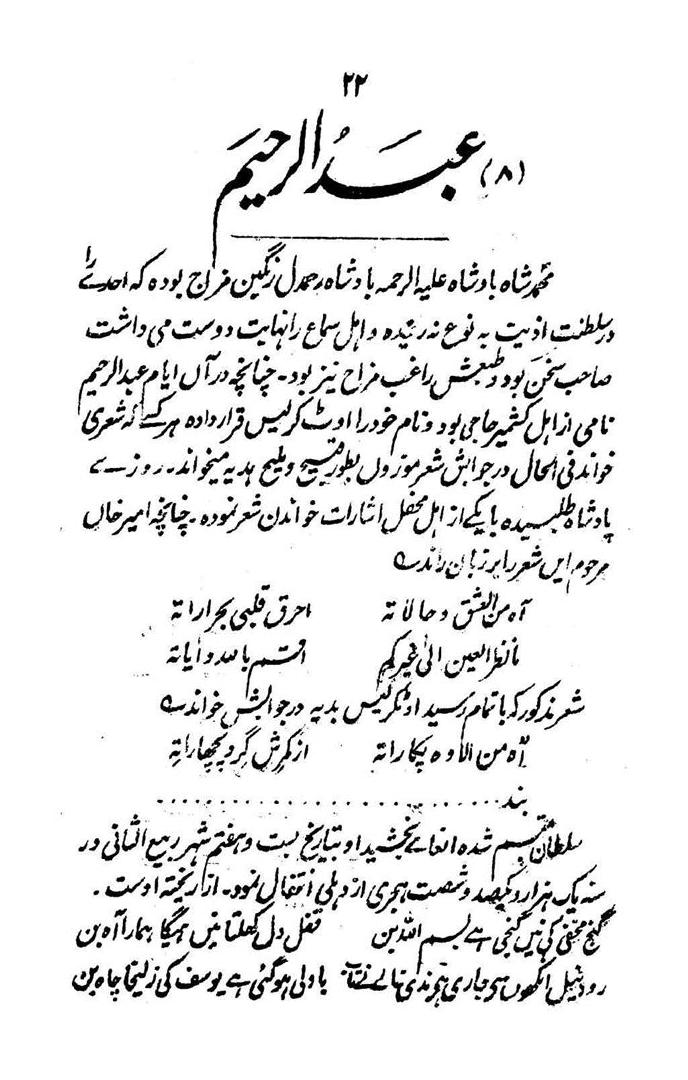 ۲۲
(۸) عبدالرحیم
محمد شاہ بادشاہ علیہ الرحمہ بادشاہ رحمدل رنگین مزاج بودہ کہ احدے را
در سلطنت اذیت بہ نوع نہ رسیدہ و اہل سماع را نہایت دوست می داشت
صاحب سخن بود و طبعش راغب مزاح نیز بود۔ چنانچہ در آں ایام عبدالرحیم
نامی از اہل کشمیر حاجی بود و نام خود را اوٹ کرلیس قرار دادہ ہر کسے کہ شعری
خواند فی الحال در جوابش شعر موزوں بطور قبیح و ملیح ہدیہ میخواند۔ روزے
بادشاہ طلبیدہ با یکے از اہل محفل اشارات خواندن شعر نمودہ۔ چنانچہ امیر خاں
مرحوم ایں شعر را بر زبان راند
آہ من العشق و حالاتہ احرق قلبی بحراراتہ
ما نظر العین الیٰ غیرکم اقسم باللہ و آیاتہ
شعر مذکور کہ با تمام رسید اوٹکرلیس بدیہ در جوابش خواند
آہ من الاوہ پکاراتہ از کرش گرد پچھاراتہ
بند ............................
سلطان تبسم شدہ انعامے بخشید و بتاریخ بست و ہفتم شہر ربیع الثانی در
سنہ یک ہزار و یکصد و شصت ہجری از دہلی انتقال نمود۔ از ریختہ اوست۔
گنج مخفی کی نیں کنجی ہے بسم اللہ بن قفل دل کھلتا نیں ہیگا ہمارا آہ بن
رود نیل انکھوں سی جاری ہو ندی نالے باولی ہو گئی ہے یوسف کی زلیخا چاہ بن